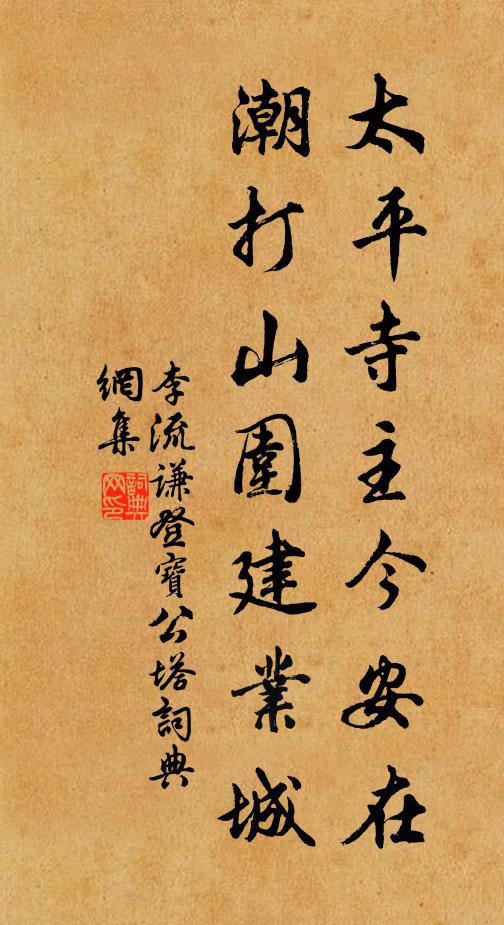 太平寺主今安在
潮打山圍建業城
李流谦登寶公塔詞典
網集
詞典
网印